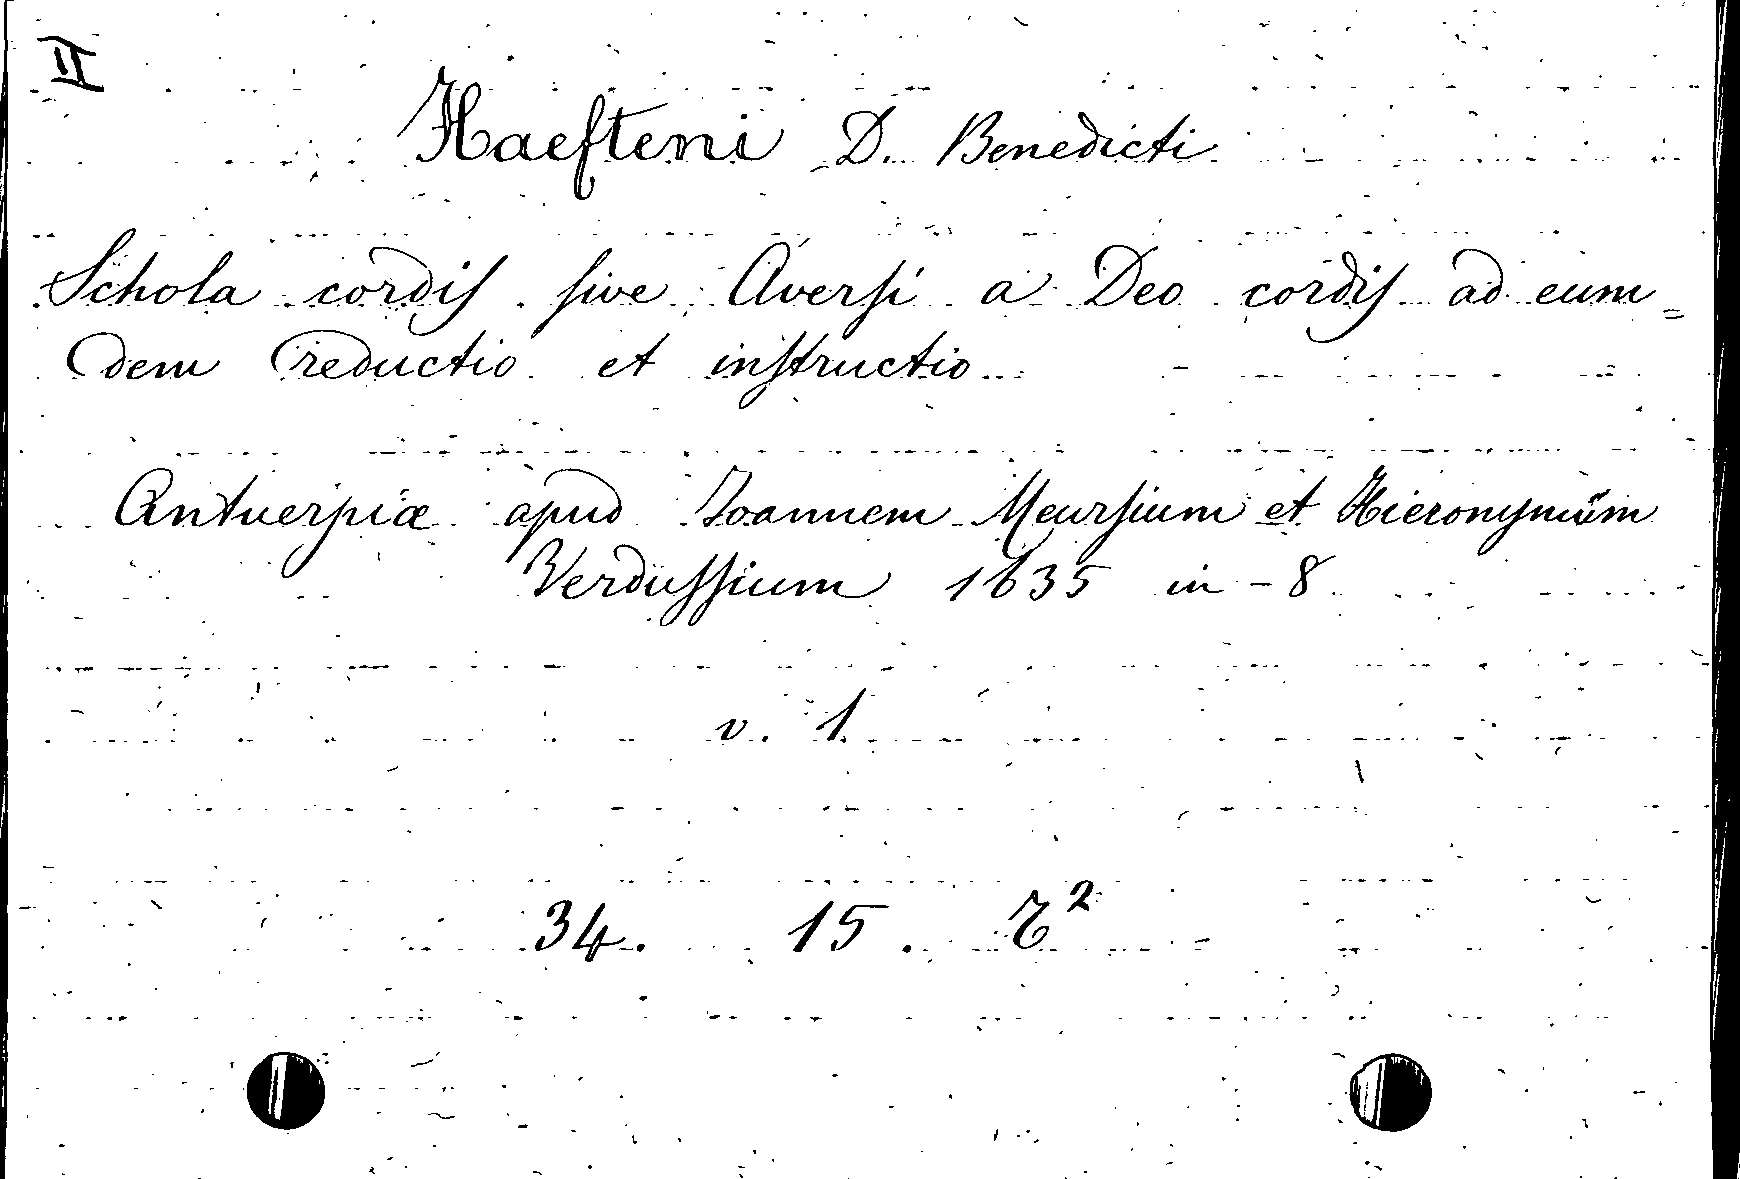 II
Haefteni D. Benedicti
Schola cordis sive Aversi a Deo cordis ad eum=
dem reductio et instructio
Antuerpiæ apud Ioannem Meursium et Hieronymum
Verdussium 1635 in-8
v. 1.
34. 15.